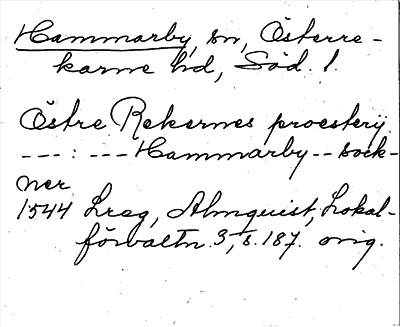 Hammarby, sn, Österre-
karne hd, Söd. l.
Östre Rekernes proestery
---:--- Hammarby -- sock-
ner
1544 Lreg, Almquist, Lokal-
förvaltn. 3, s. 187. orig.